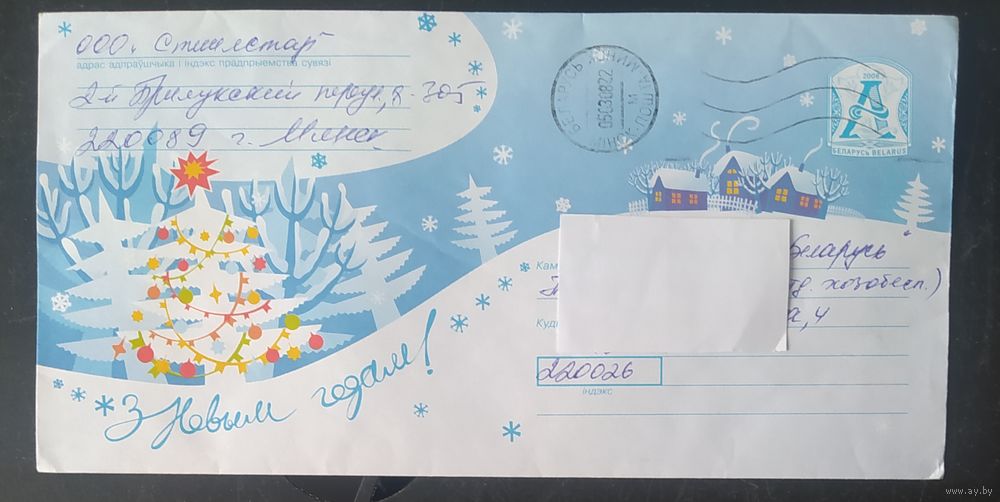 ООО. Стилстарт
адрас адпраўшчыка і індэкс прадпрыемства сувязі
2-й Прилукский
220089 г. Минск
БЕЛАРУСЬ
2008
А
БЕЛАРУСЬ BELARUS
Беларусь"
Кам
хозобесп.)
Куды
а, 4
220026
індэкс
З Новым годам!
www.ay.by